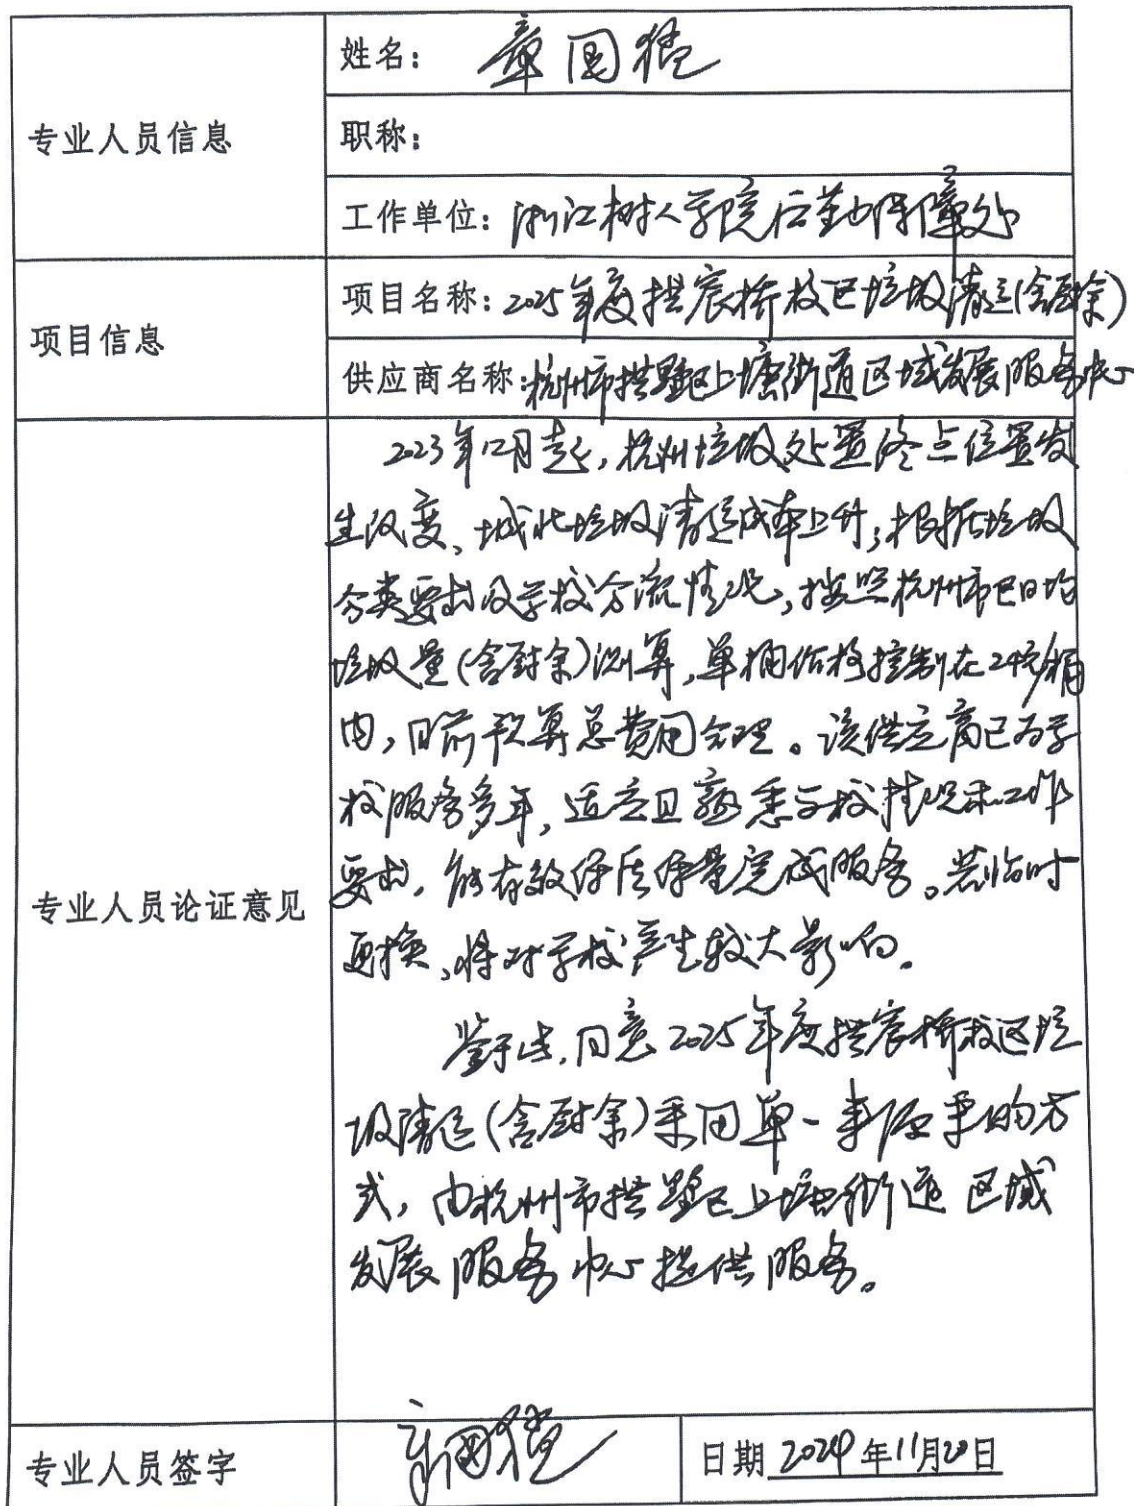 专业人员信息
姓名: 章国
职称:
工作单位: 浙江树人学院后勤保障处
项目信息
项目名称: 2025年度拱宸桥校区垃圾清运(含厨余)
供应商名称: 杭州市拱墅区上塘街道区域发展服务中心
专业人员论证意见
2023年12月起,杭州垃圾处置终点位置发
生改变、城北垃圾清运成本上升;根据垃圾
分类要求及学校分流情况,按照杭州市区日均
垃圾量(含厨余)测算,单桶价格控制在24元/桶
内,目前预算总费用合理。该供应商已为学
校服务多年,适应且熟悉学校情况和工作
要求,能有效保质保量完成服务。若临时
更换,将对学校产生较大影响。
鉴于此,同意2025年度拱宸桥校区垃
圾清运(含厨余)采用单一来源采购方
式,由杭州市拱墅区上塘街道区域
发展服务中心提供服务。
专业人员签字
章国
日期 2024年11月20日